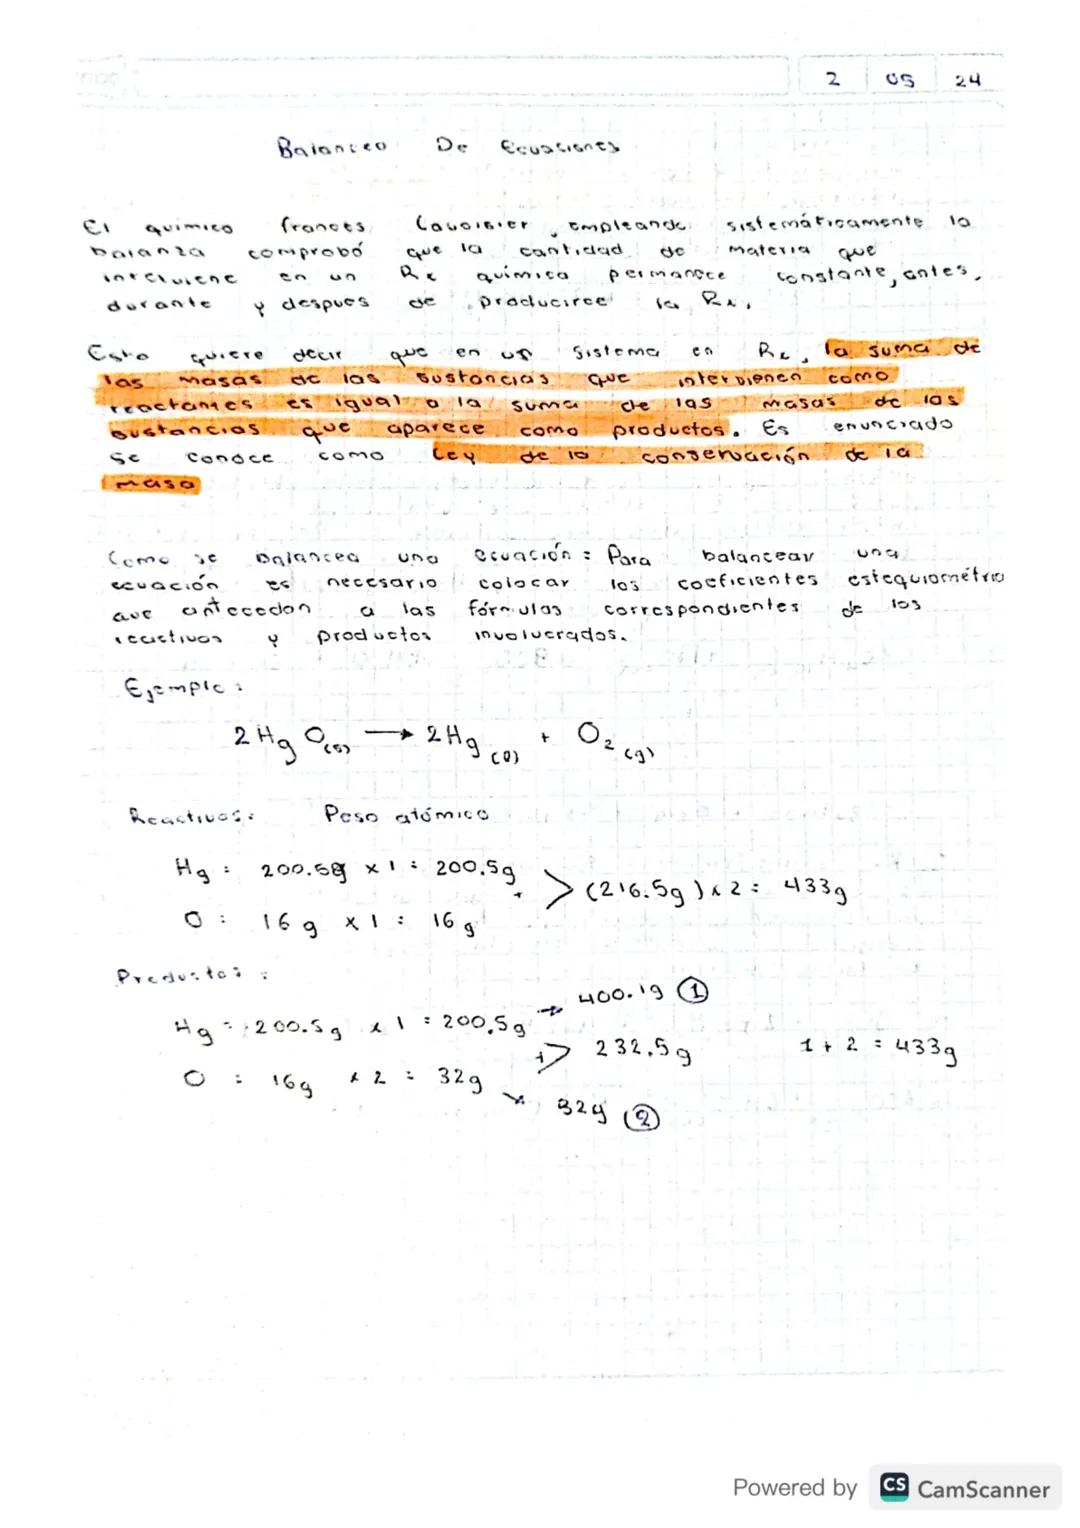 2 05 24
Balanceo De Ecuaciones
El quimico frances Lavoisier, empleando sistemáticamente la
balanza comprobó que la cantidad de materia que
interviene en un Rx química permanece constante, antes,
durante y despues de producirce la Rx,
Esto quiere decir que en un sistema en Rx, la suma de
las masas de las sustancias que intervienen como
reactantes es igual a la suma de las masas de las
sustancias que aparece como productos. Es enunciado
se conoce como Ley de la conservación de la
masa
Como se balancea una ecuación: Para balancear una
ecuación es necesario colocar los coeficientes estequiométrico
que antecedan a las fórmulas correspondientes de los
reactivos y productos involucrados.
Ejemplo:
2 Hg O(s) → 2 Hg (l) + O2 (g)
Reactivos: Peso atómico
Hg : 200.5g x 1 = 200.5g
+ > (216.5g) x 2 = 433g
O : 16 g x 1 = 16 g
Productos :
→ 400.1g ①
Hg = 200.5g x 1 = 200.5g
+ > 232.5g 1 + 2 = 433g
O : 16g x 2 = 32g
32g ②
Powered by CS CamScanner